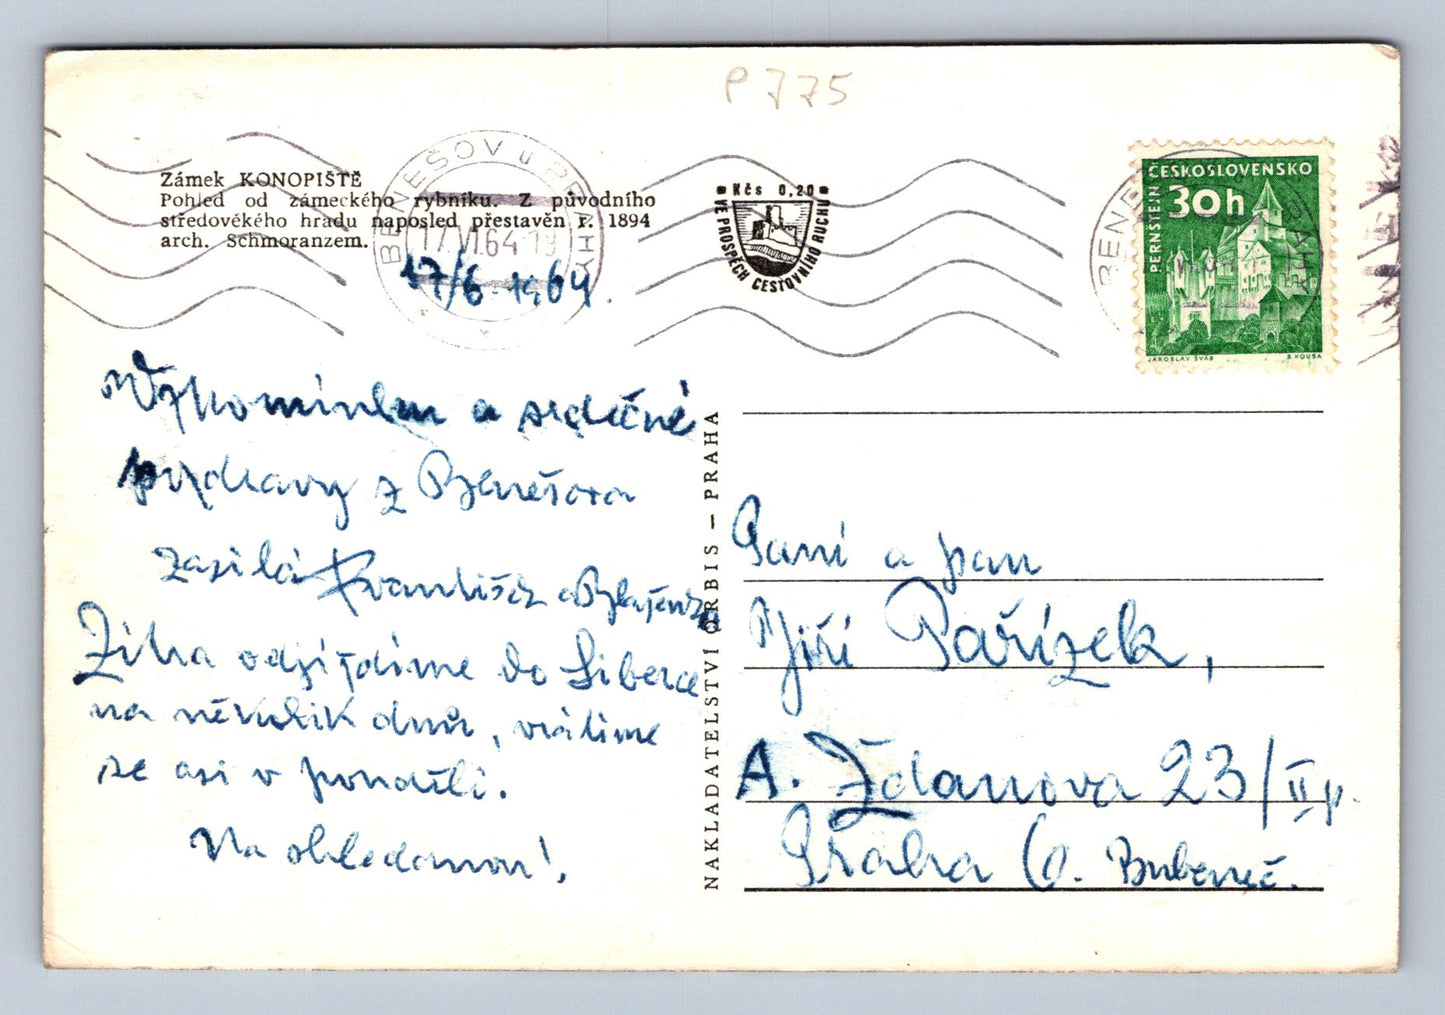 P 775
Zámek KONOPIŠTĚ
Pohled od zámeckého rybníku. Z původního
středověkého hradu naposled přestavěn r. 1894
arch. Schmoranzem.
BENEŠOV u PRAHY
17.VI.64-19
17/6 1964.
Vzpomínku a srdečné
pozdravy z Benešova
zasílá František a Blažena
Zítra odjíždíme do Liberce
na několik dnů, vrátíme
se asi v pondělí.
Na shledanou!
NAKLADATELSTVÍ ORBIS – PRAHA
Kčs 0,20
VE PROSPĚCH CESTOVNÍHO RUCHU
ČESKOSLOVENSKO
30h
PERNŠTEJN
JAROSLAV ŠVÁB
B. HOUSA
Paní a pan
Jiří Pařízek,
A. Ždanova 23/II p.
Praha 6. Bubeneč.